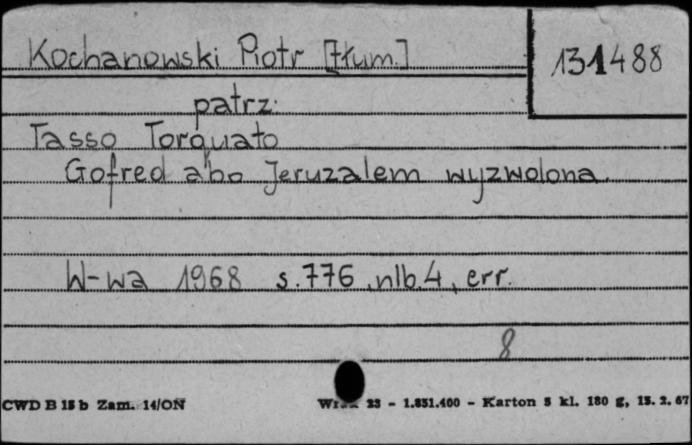 Kochanowski Piotr [tłum.]
131488
patrz:
Tasso Torquato
Gofred abo Jeruzalem wyzwolona.
W-wa 1968 s. 776, nlb. 4, err.
8
CWD B 15 b Zam. 14/ON
23 - 1.851.400 - Karton 5 kl. 180 g, 15. 2. 67